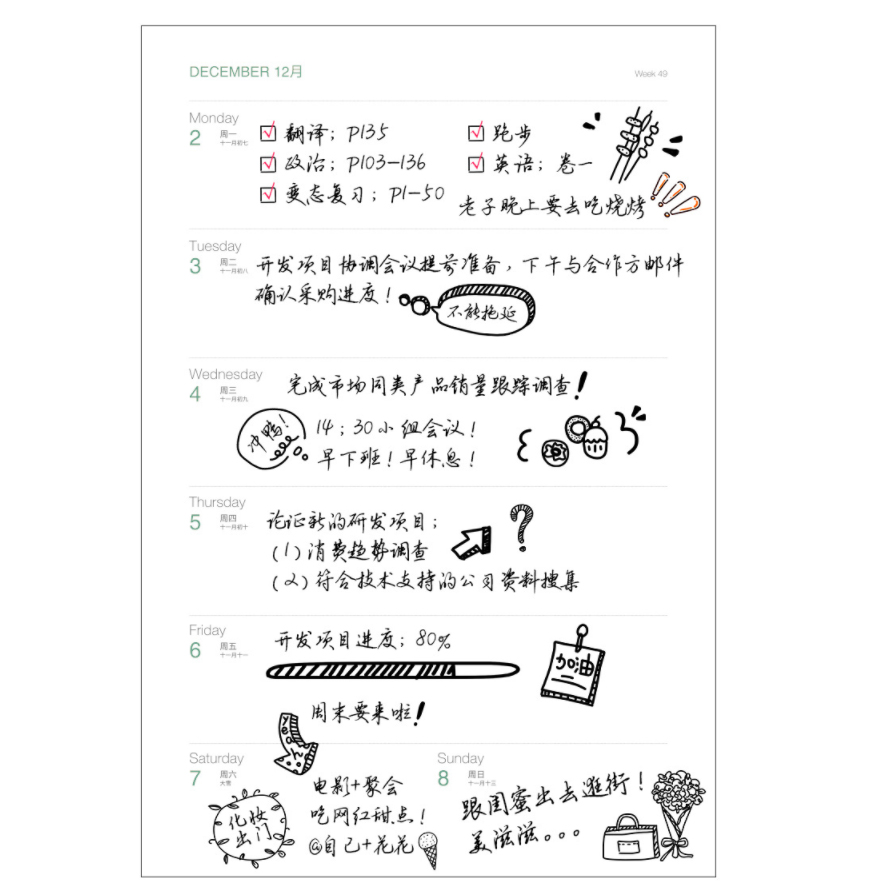 DECEMBER 12月
Week 49
Monday
2 周一
十一月初七
翻译；P135
跑步
政治；P103-136
英语；卷一
变态复习；P1-50
老子晚上要去吃烧烤
Tuesday
3 周二
十一月初八
开发项目协调会议提前准备，下午与合作方邮件
确认采购进度！
不能拖延
Wednesday
4 周三
十一月初九
完成市场同类产品销量跟踪调查！
冲鸭！
14；30小组会议！
早下班！早休息！
Thursday
5 周四
十一月初十
论证新的研发项目；
(1)消费趋势调查
(2)符合技术支持的公司资料搜集
?
Friday
6 周五
十一月十一
开发项目进度；80%
加油
周末要来啦！
yeah
Saturday
7 周六
大雪
化妆
出门
电影+聚会
吃网红甜点！
@自己+花花
Sunday
8 周日
十一月十三
跟闺蜜出去逛街！
美滋滋。。。